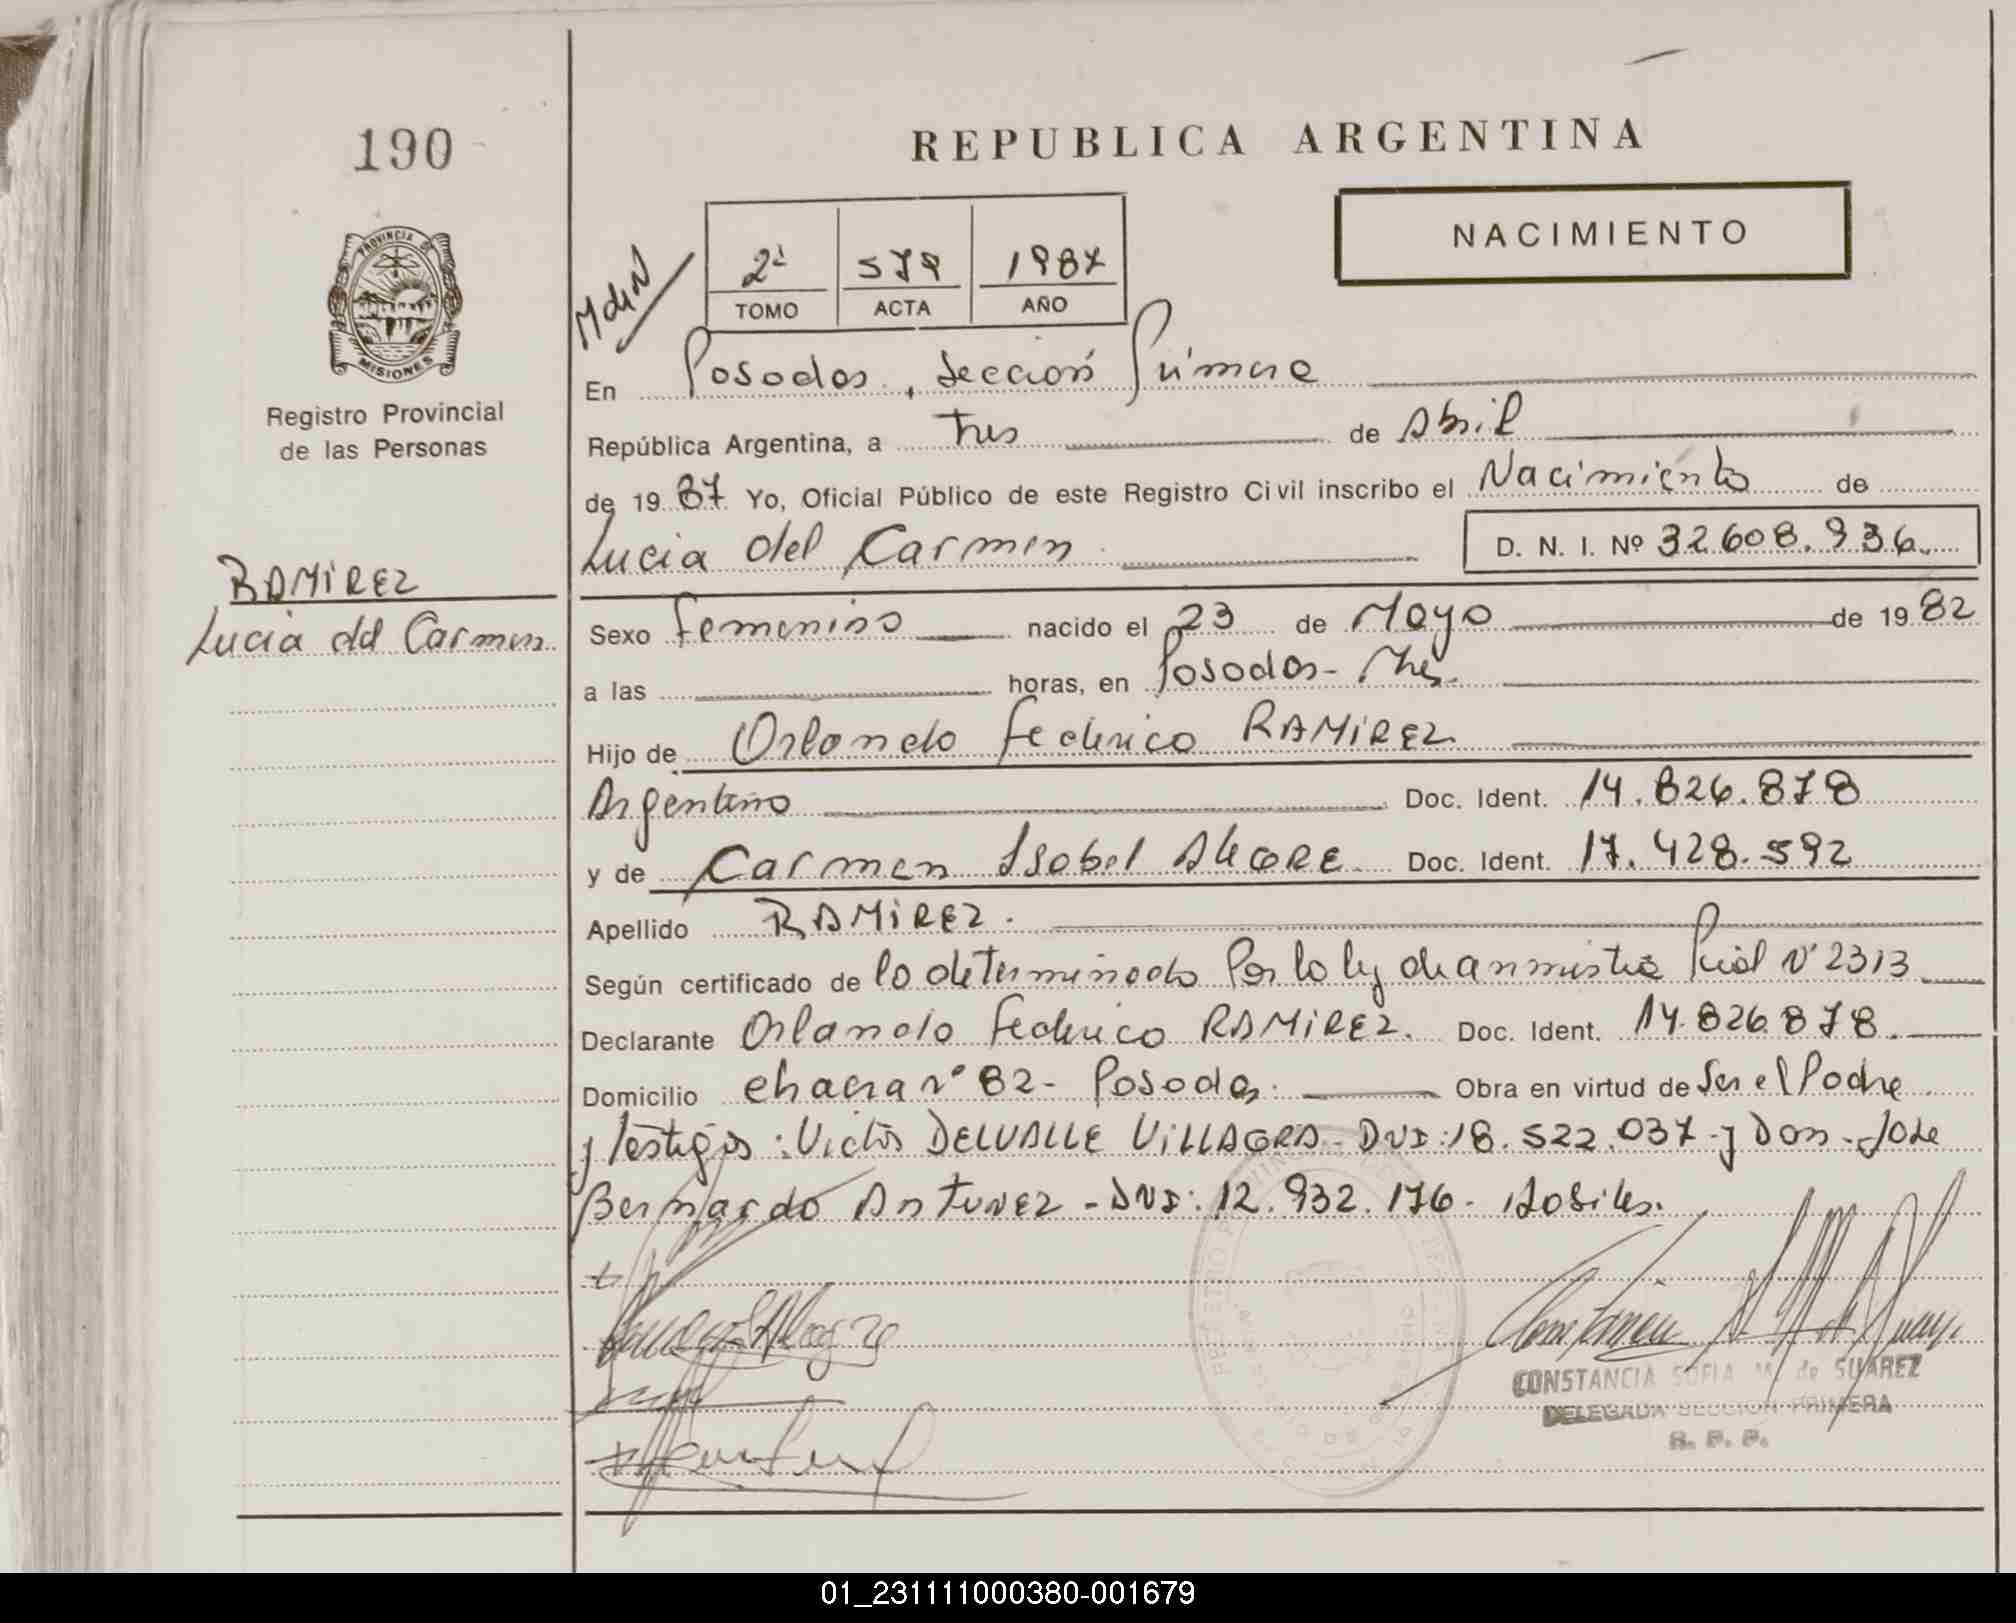 190
REPUBLICA ARGENTINA
NACIMIENTO
2ª 579 1987
TOMO ACTA AÑO
MdeN
PROVINCIA DE
MISIONES
Registro Provincial
de las Personas
RAMIREZ
Lucia del Carmen
En Posadas, Sección Primera
República Argentina, a tres de Abril
de 1987 Yo, Oficial Público de este Registro Civil inscribo el Nacimiento de
Lucia del Carmen D. N. I. Nº 32.608.936.
Sexo femenino nacido el 23 de Mayo de 1982
a las horas, en Posadas - Mnes.
Hijo de Orlando Federico RAMIREZ
Argentino Doc. Ident. 14.826.878
y de Carmen Isabel Doc. Ident. 17.428.592
Apellido RAMIREZ.
Según certificado de lo determinado Por la ley de anmistia Pcial Nº 2313
Declarante Orlando Federico RAMIREZ. Doc. Ident. 14.826.878.
Domicilio chacra nº 82 - Posadas. Obra en virtud de Ser el Padre
y testigos: Victor DELVALLE VILLAGRA - DNI: 18.522.037 - y Don - Jose
Bernardo Antunez - DNI: 12.932.176 - Habiles.
CONSTANCIA SOFIA M. de SUAREZ
DELEGADA SECCION PRIMERA
R. P. P.
01_231111000380-001679